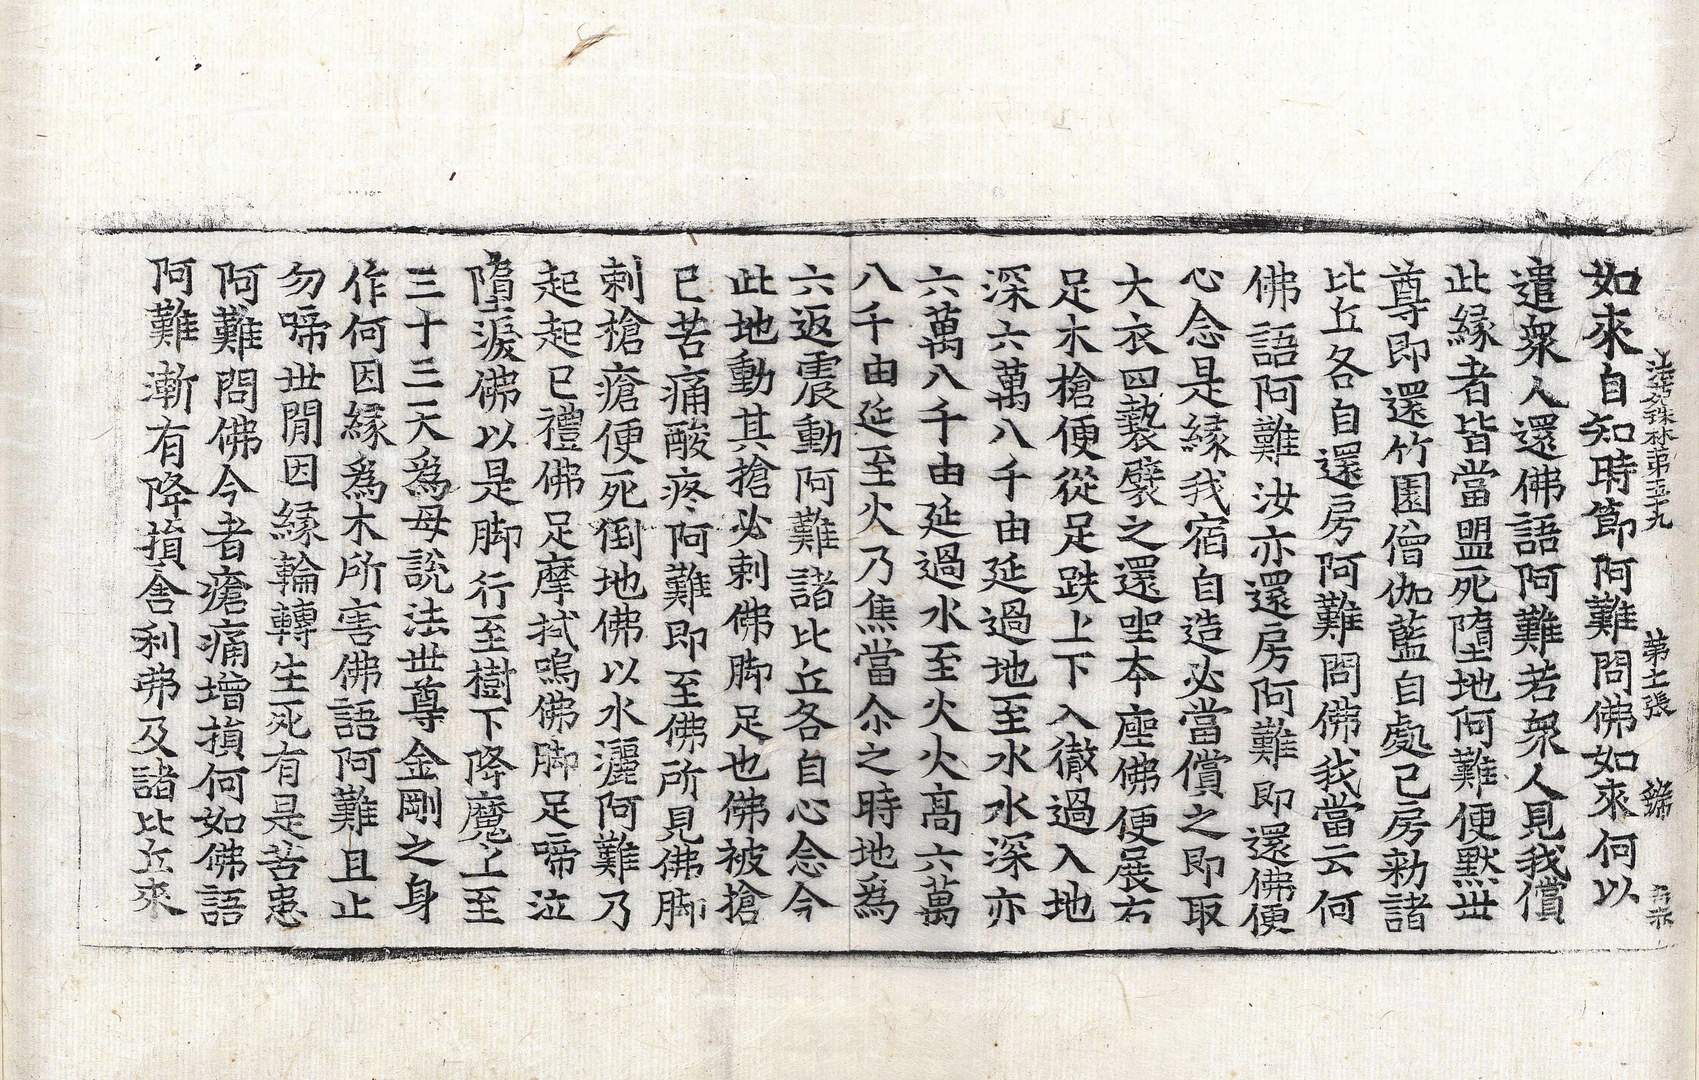 法苑珠林第五十九 第十張 錦
如來自知時節阿難問佛如來何以
遣衆人還佛語阿難若衆人見我償
此緣者皆當盟死墮地阿難便默世
尊即還竹園僧伽藍自處己房勑諸
比丘各自還房阿難問佛我當云何
佛語阿難汝亦還房阿難即還佛便
心念是緣我宿自造必當償之即取
大衣四㲲襞之還坐本座佛便展右
足木槍便從足趺上下入徹過入地
深六萬八千由延過地至水水深亦
六萬八千由延過水至火火高六萬
八千由延至火乃焦當尒之時地爲
六返震動阿難諸比丘各自心念今
此地動其槍必刺佛脚足也佛被槍
已苦痛酸疼阿難即至佛所見佛脚
刺槍瘡便死倒地佛以水灑阿難乃
起起已禮佛足摩拭嗚佛脚足啼泣
墮淚佛以是脚行至樹下降魔上至
三十三天爲母說法世尊金剛之身
作何因緣爲木所害佛語阿難且止
勿啼世閒因緣輪轉生死有是苦患
阿難問佛今者瘡痛增損何如佛語
阿難漸有降損舍利弗及諸比丘來